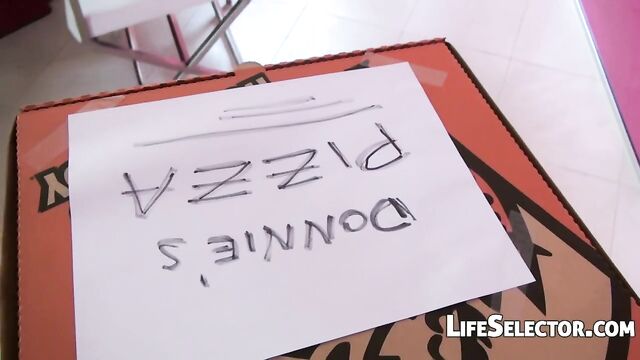 DONNIE'S
PIZZA
LIFESELECTOR.COM